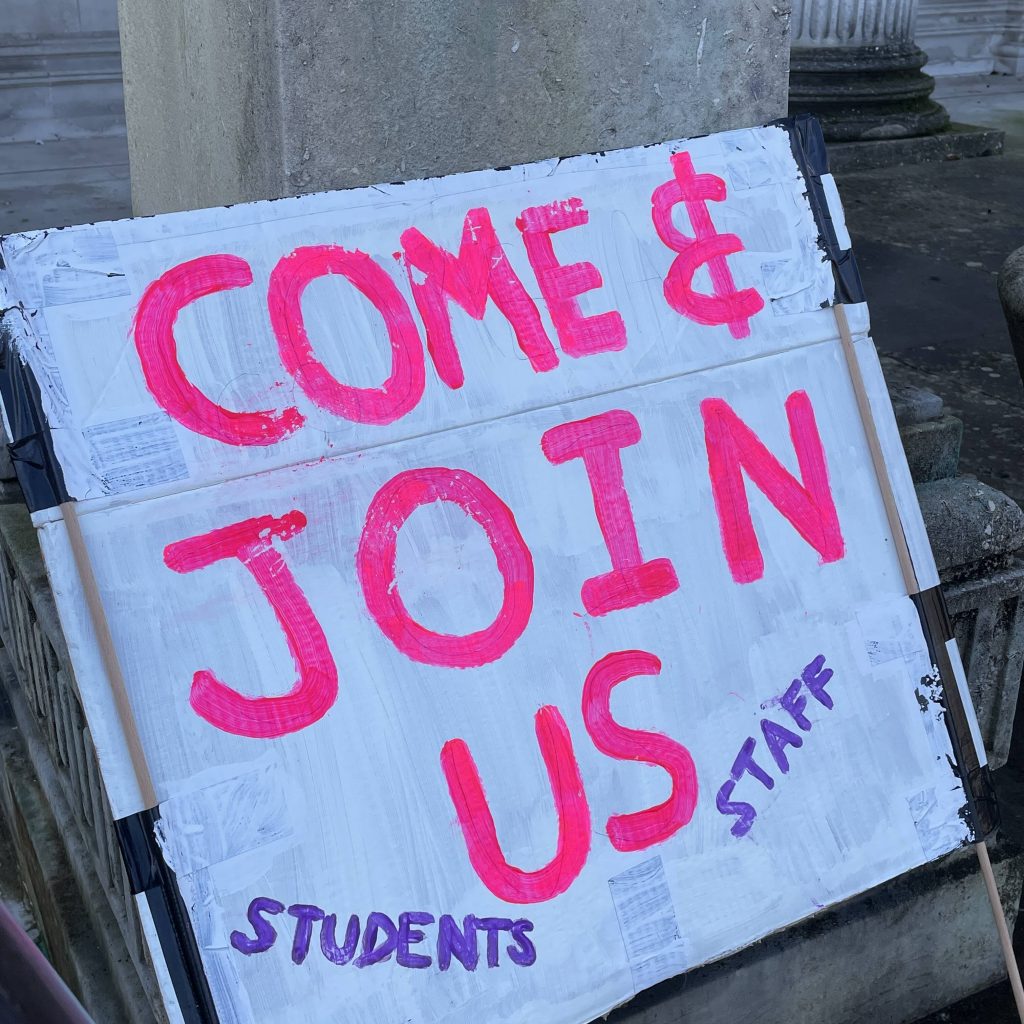 COME &
JOIN
US
STAFF
STUDENTS